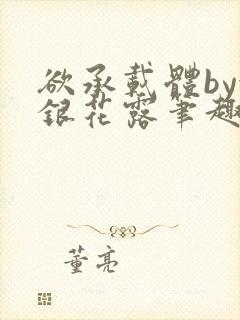 欲承載體by
銀花露筆趣
董亮